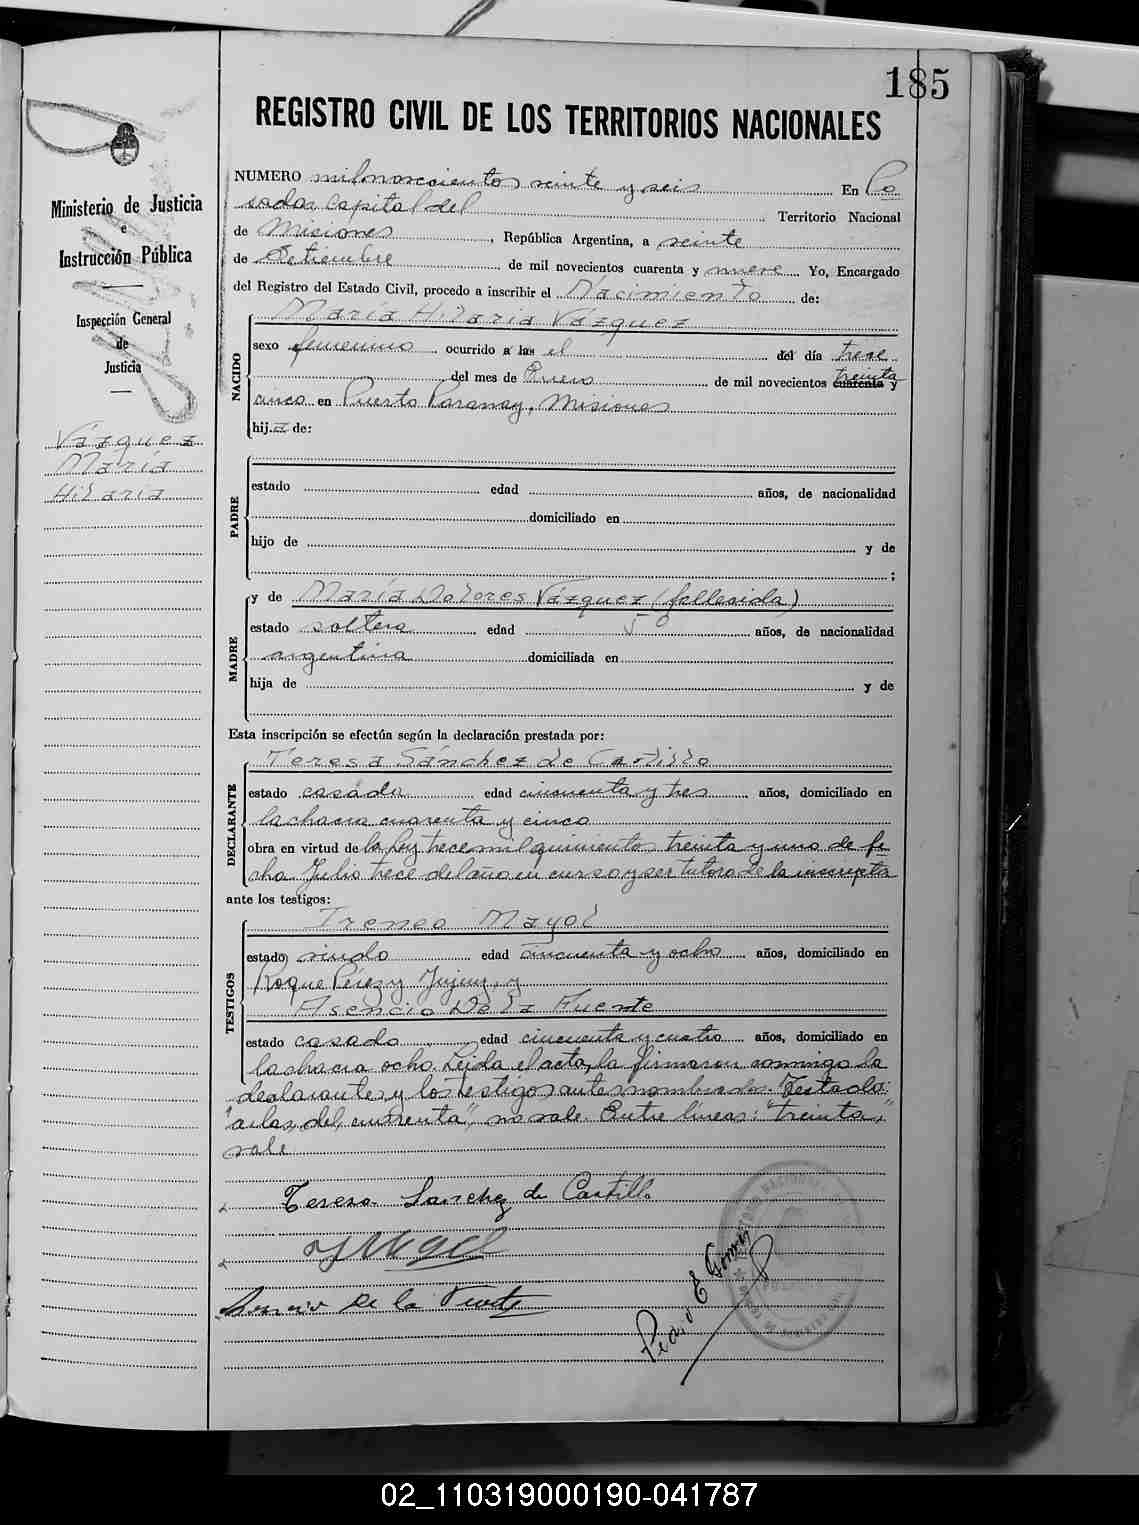 185
REGISTRO CIVIL DE LOS TERRITORIOS NACIONALES
Ministerio de Justicia
e
Instrucción Pública
Inspección General
de
Justicia
Vázquez
María
Hilaria
NUMERO milnovecientos veinte y seis En Po
sadas Capital del Territorio Nacional
de Misiones, República Argentina, a veinte
de Setiembre de mil novecientos cuarenta y nueve Yo, Encargado
del Registro del Estado Civil, procedo a inscribir el Nacimiento de:
María Hilaria Vázquez
NACIDO
sexo femenino ocurrido a las el del día trece
del mes de Enero de mil novecientos cuarenta y treinta
cinco en Puerto Paranay, Misiones
hija de:
PADRE
estado edad años, de nacionalidad
domiciliado en
hijo de y de
;
MADRE
y de María Dolores Vázquez (fallecida)
estado soltera edad 50 años, de nacionalidad
argentina domiciliada en
hija de y de
Esta inscripción se efectúa según la declaración prestada por:
DECLARANTE
Teresa Sánchez de Castillo
estado casada edad cincuenta y tres años, domiciliado en
la chacra cuarenta y cinco
obra en virtud de la Ley trece mil quinientos treinta y uno de fe
cha Julio trece del año en curso y ser tutora de la inscripta
ante los testigos:
TESTIGOS
Ireneo Mayol
estado viudo edad cincuenta y ocho años, domiciliado en
Roque Pérez y Jujuy, y
Asencio De la Fuente
estado casado edad cincuenta y cuatro años, domiciliado en
la chacra ocho. Leida el acta, la firmaron conmigo la
declarante y los testigos antes nombrados. Testado:
"a las, del, cuarenta", no vale. Entre lineas: "treinta,"
vale
Teresa Sanchez de Castillo
de la Fuente
Pedro E Gomez
02_110319000190-041787